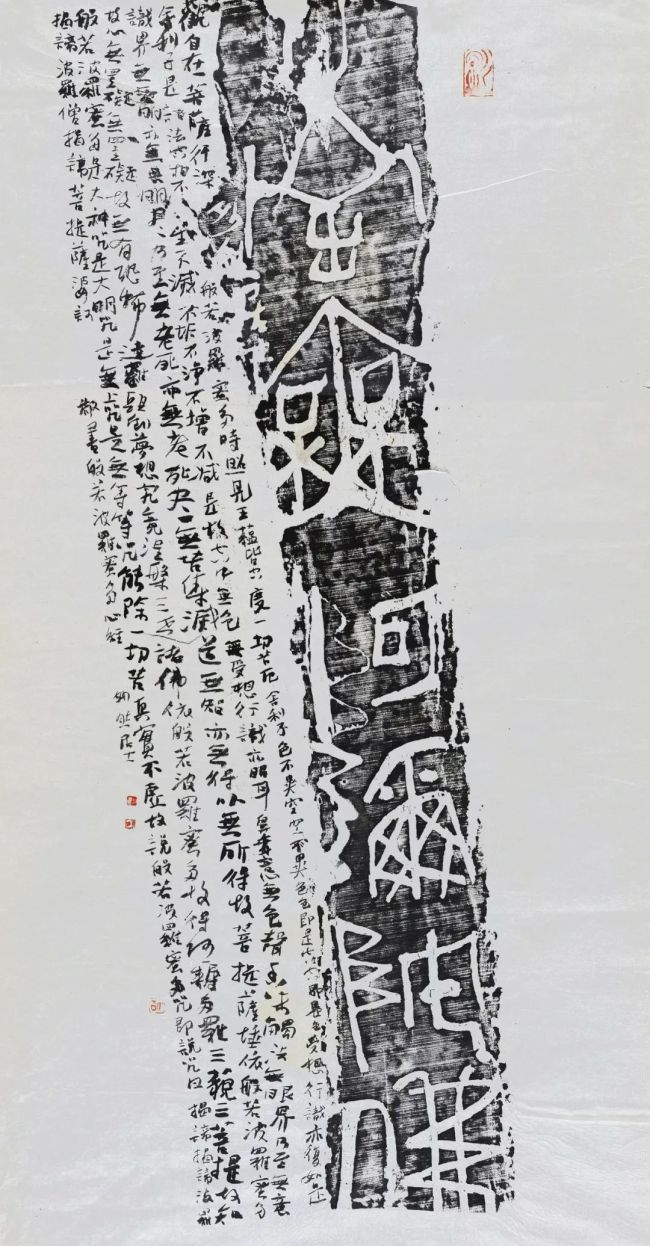 阿彌陀佛
觀自在菩薩行深般若波羅蜜多時照見五蘊皆空度一切苦厄舍利子色不異空空不異色色即是空空即是色受想行識亦復如是
舍利子是諸法空相不生不滅不垢不淨不增不减是故空中無色無受想行識亦無眼耳鼻舌身意無色聲香味觸法無眼界乃至無意
識界無無明亦無無明盡乃至無老死亦無老死盡無苦集滅道無智亦無得以無所得故菩提薩埵依般若波羅蜜多
故心無罣礙無罣礙故無有恐怖遠離顛倒夢想究竟涅槃三世諸佛依般若波羅蜜多故得阿耨多羅三藐三菩提故知
般若波羅蜜多是大神咒是大明咒是無上咒是無等等咒能除一切苦真實不虛故說般若波羅蜜多咒即說咒曰揭諦揭諦波羅
揭諦波羅僧揭諦菩提薩婆訶
敬書般若波羅蜜多心經
居士